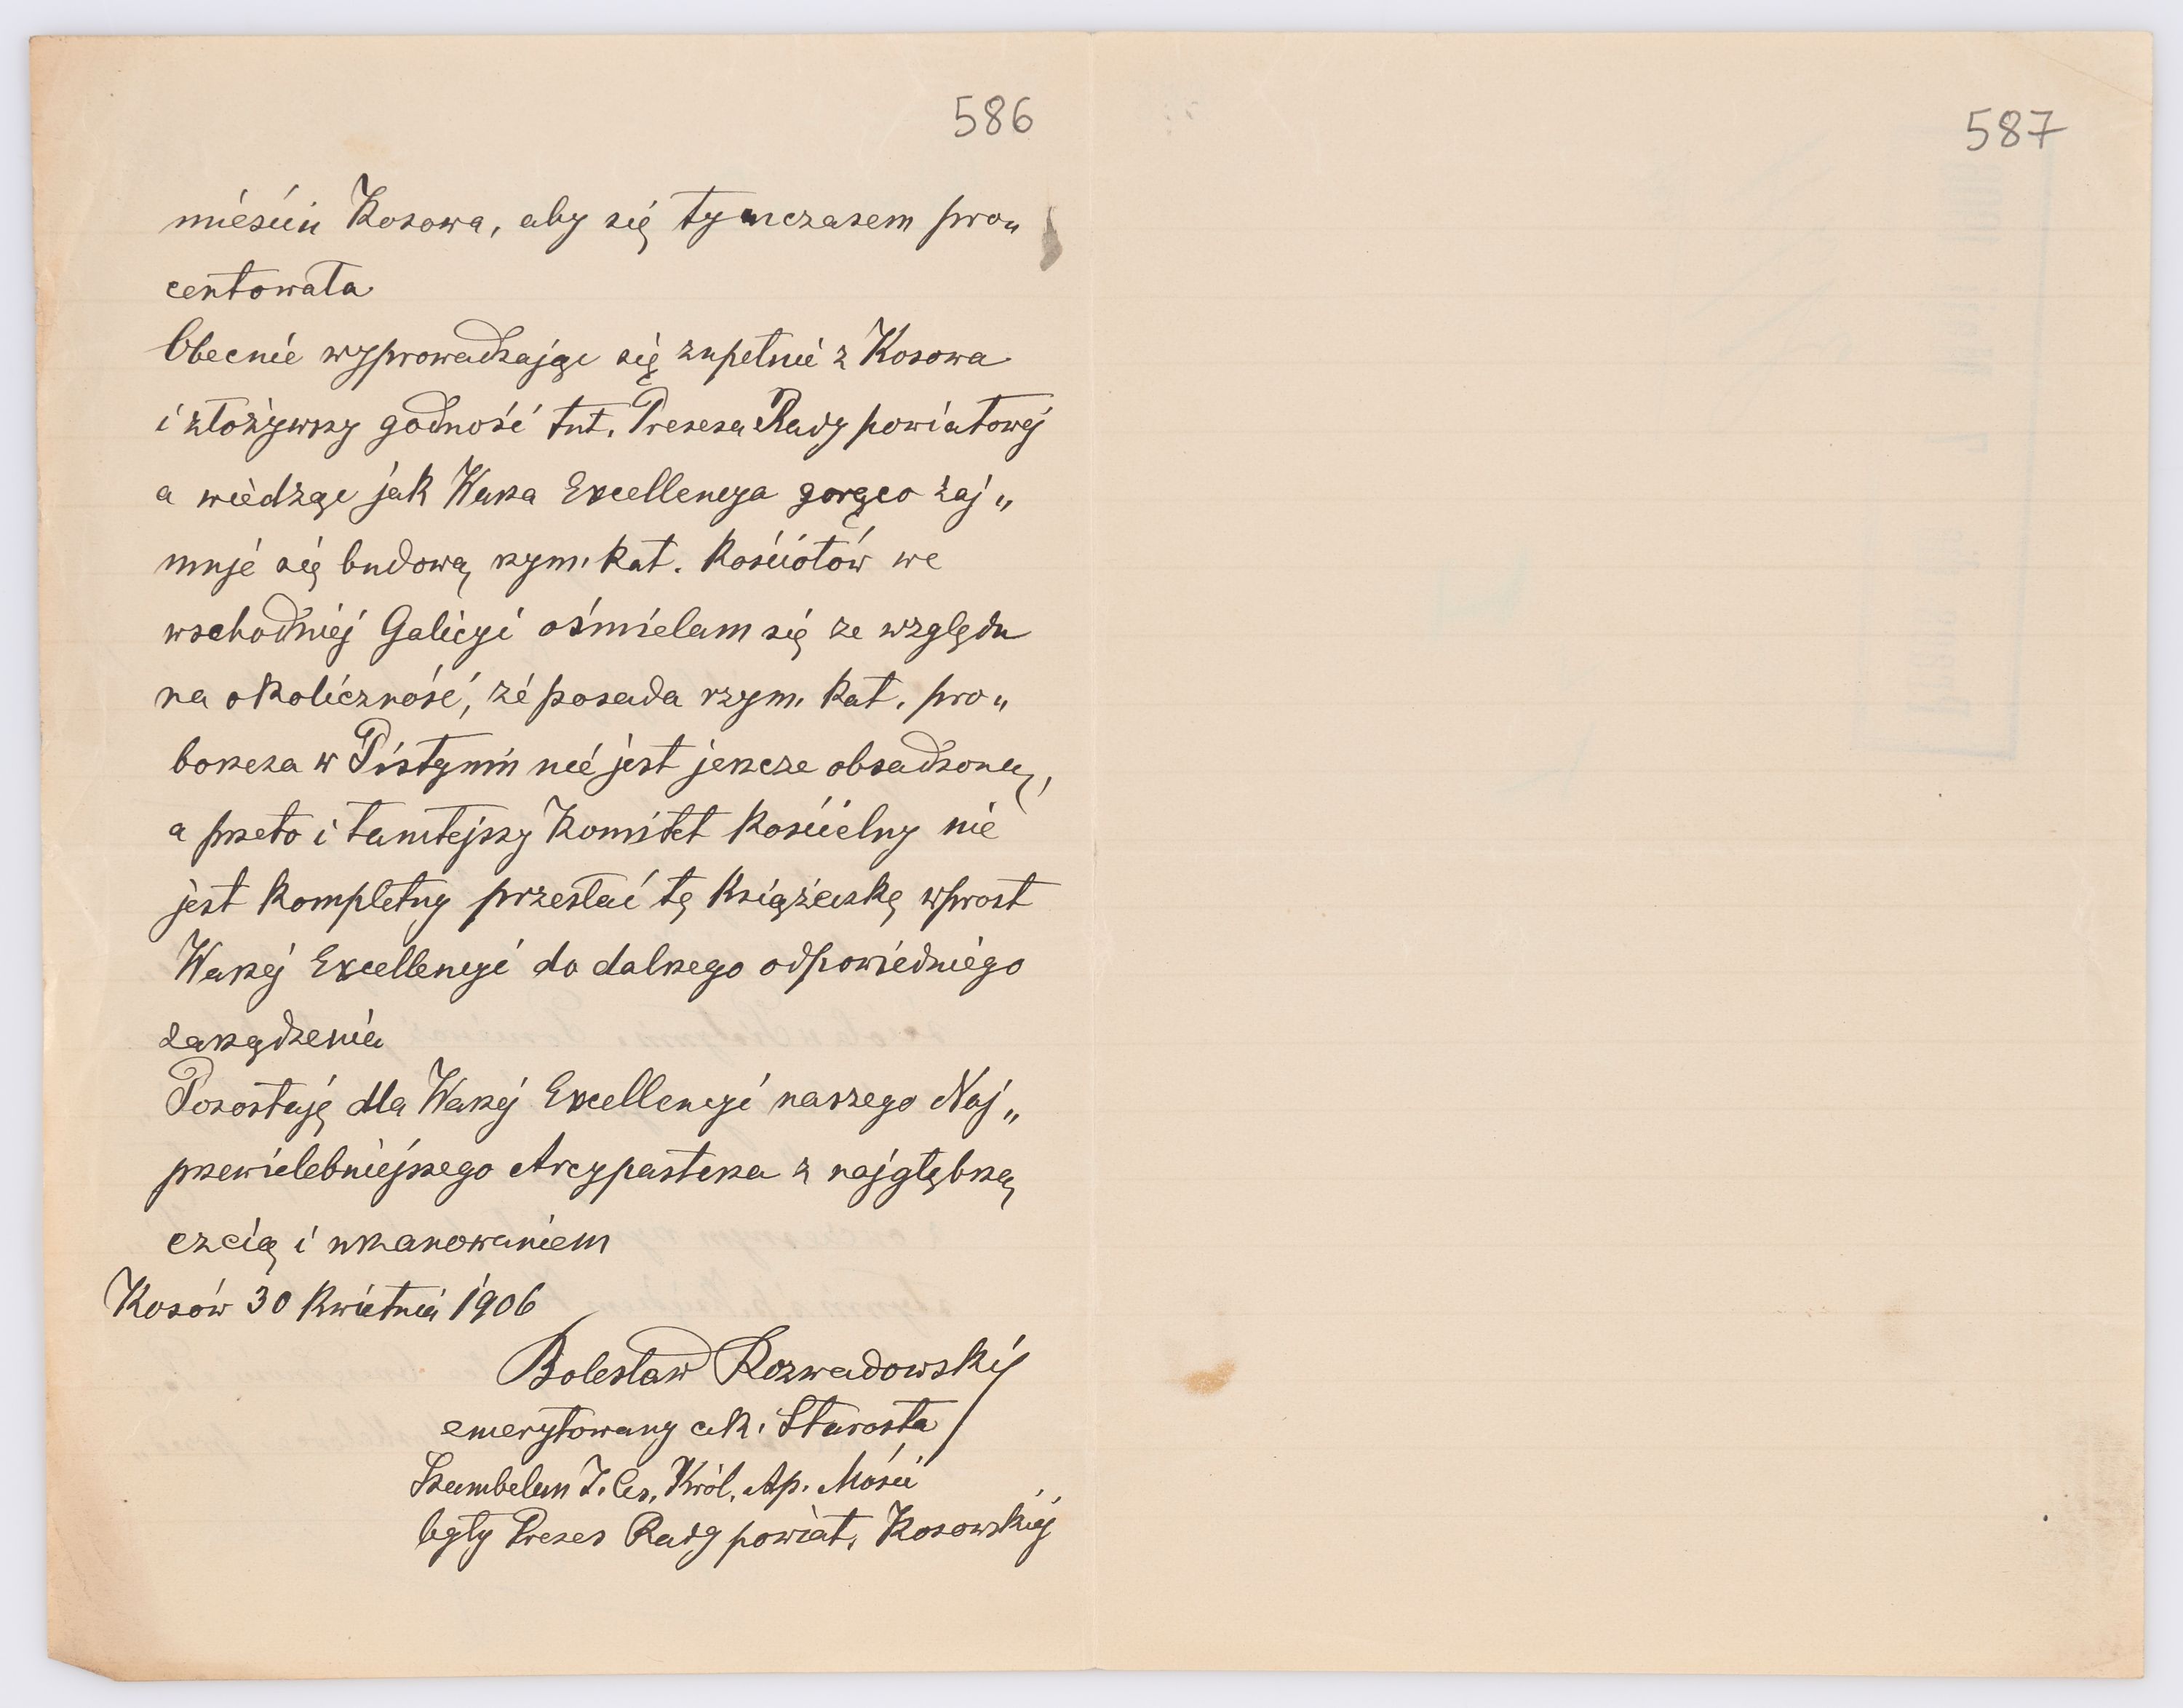 586
mieście Kosowa, aby się tymczasem pro„
centowała
Obecnie wyprowadzając się zupełnie z Kosowa
i złożywszy godność tut. Prezesa Rady powiatowej
a wiedząc jak Wasza Excellencya gorąco zaj„
muje się budową rzym. kat. kościołów we
wschodniej Galicyi ośmielam się ze względu
na okoliczność, że posada rzym. kat. pro„
boszcza w Pistyniu nie jest jeszcze obsadzoną,
a przeto i tamtejszy Komitet kościelny nie
jest kompletny przesłać tę książeczkę wprost
Waszej Excellencyi do dalszego odpowiedniego
zarządzenia
Pozostaję dla Waszej Excellencyi naszego Naj„
przewielebniejszego Arcypasterza z najgłębszą
czcią i uszanowaniem
Kosów 30 kwietnia 1906
Bolesław Rozwadowski
emerytowany c.k. Starosta
Szambelan J. Ces. Król. Ap. Mości
były Prezes Rady powiat. Kosowskiej
587